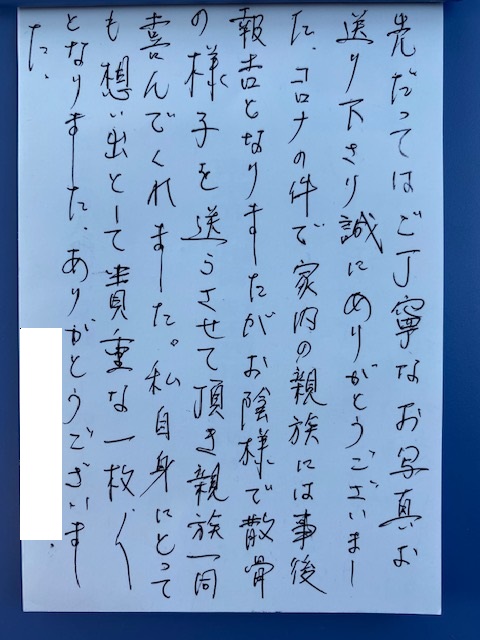 先だってはご丁寧なお写真お
送り下さり誠にありがとうございまし
た、コロナの件で家内の親族には事後
報告となりましたがお陰様で散骨
の様子を送うさせて頂き親族一同
喜んでくれました。私自身にとって
も想い出として貴重な一枚、
となりました、ありがとうございまし
た、